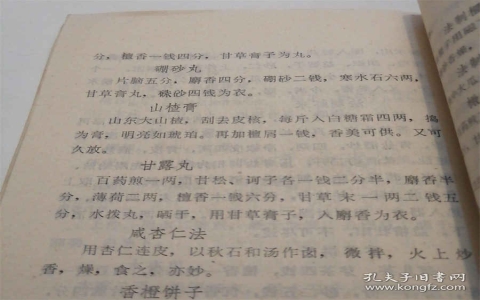 分，檀香一钱四分，甘草膏子为丸。
硼砂丸
片脑五分，麝香四分，硼砂二钱，寒水石六两，
甘草膏丸，硃砂四钱为衣。
山楂膏
山东大山楂，刮去皮核，每斤入白糖霜四两，捣
为膏，明亮如琥珀。再加檀屑一钱，香美可供。又可
久放。
甘露丸
百药煎一两，甘松、诃子各一钱二分半，麝香半
分，薄荷二两，檀香一钱六分，甘草末一两二钱五
分，水拨丸，晒干，用甘草膏子，入麝香为衣。
咸杏仁法
用杏仁连皮，以秋石和汤作卤，微拌，火上炒
香，燥，食之，亦妙。
香橙饼子
孔夫子旧书网
www.kongfz.com